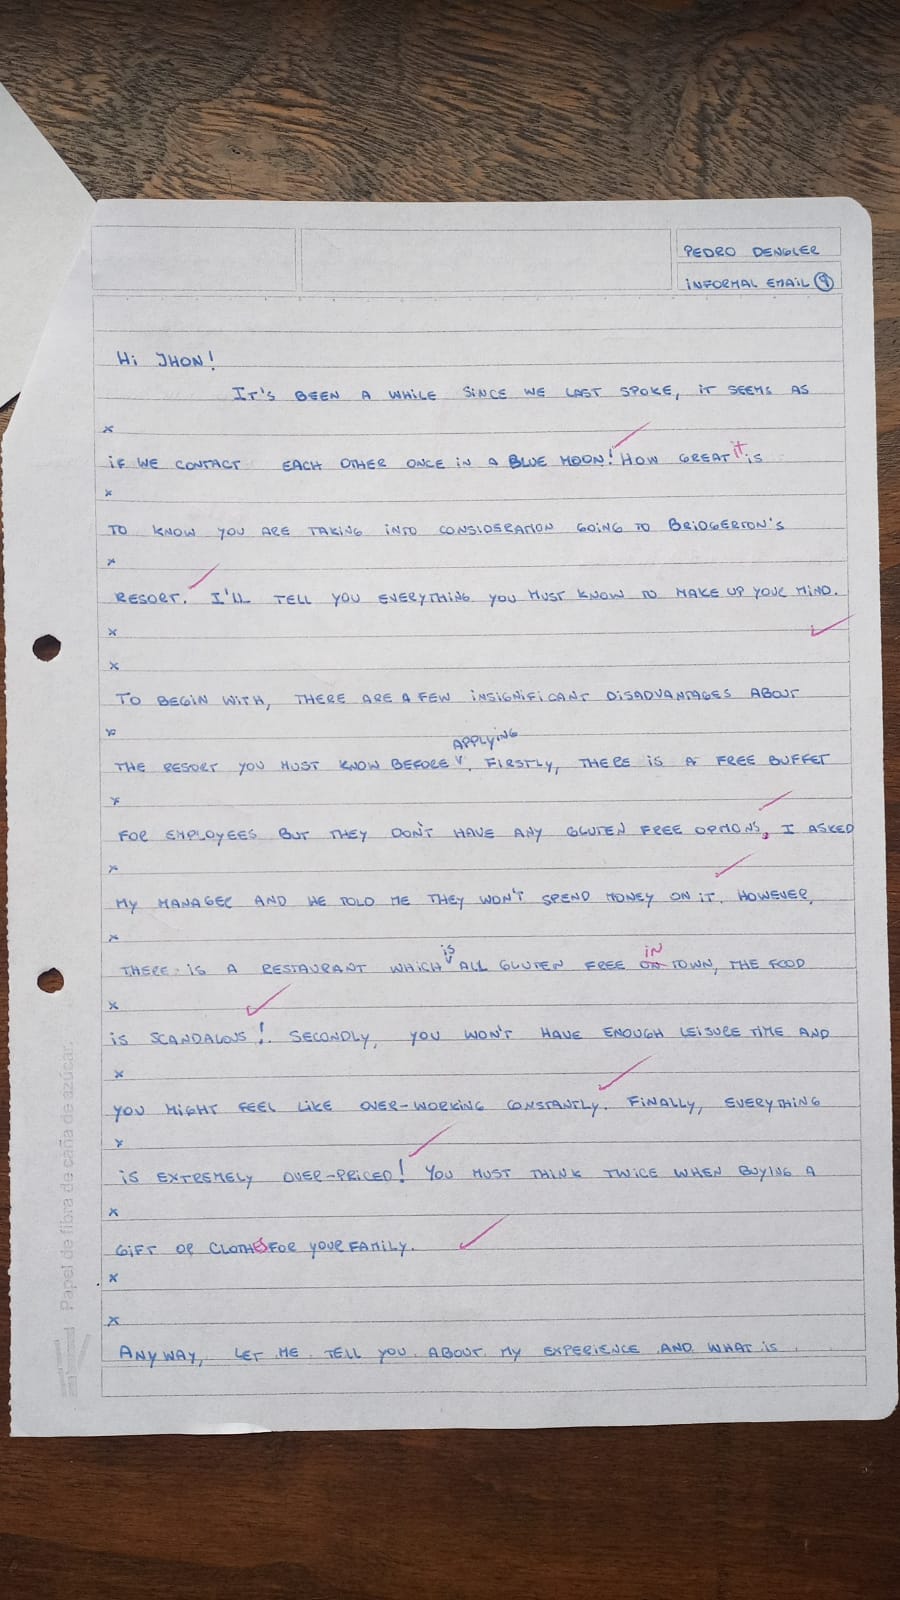 PEDRO DENGLER
INFORMAL EMAIL 9
Hi JHON!
IT'S BEEN A WHILE SINCE WE LAST SPOKE, IT SEEMS AS
IF WE CONTACT EACH OTHER ONCE IN A BLUE MOON! HOW GREAT it IS
TO KNOW YOU ARE TAKING INTO CONSIDERATION GOING TO BRIDGERTON'S
RESORT. I'LL TELL YOU EVERYTHING YOU MUST KNOW TO MAKE UP YOUR MIND.
TO BEGIN WITH, THERE ARE A FEW INSIGNIFICANT DISADVANTAGES ABOUT
THE RESORT YOU MUST KNOW BEFORE APPLYING. FIRSTLY, THERE IS A FREE BUFFET
FOR EMPLOYEES BUT THEY DON'T HAVE ANY GLUTEN FREE OPTIONS, I ASKED
MY MANAGER AND HE TOLD ME THEY WON'T SPEND MONEY ON IT. HOWEVER,
THERE IS A RESTAURANT WHICH IS ALL GLUTEN FREE ON IN TOWN, THE FOOD
IS SCANDALOUS!. SECONDLY, YOU WON'T HAVE ENOUGH LEISURE TIME AND
YOU MIGHT FEEL LIKE OVER-WORKING CONSTANTLY. FINALLY, EVERYTHING
IS EXTREMELY OVER-PRICED! YOU MUST THINK TWICE WHEN BUYING A
GIFT OR CLOTHES FOR YOUR FAMILY.
ANYWAY, LET ME TELL YOU ABOUT MY EXPERIENCE AND WHAT IS
Papel de fibra de caña de azúcar